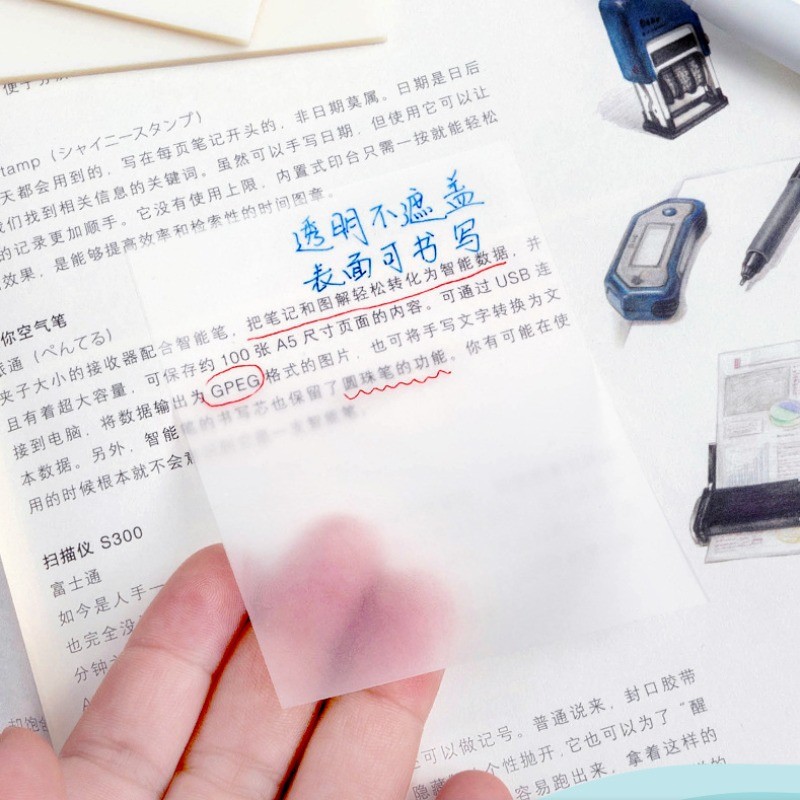 tamp（シャイニースタンプ）
天都会用到的，写在每页笔记开头的，非日期莫属。日期是日后
我们找到相关信息的关键词。虽然可以手写日期，但使用它可以让
的记录更加顺手。它没有使用上限，内置式印台只需一按就能轻松
效果，是能够提高效率和检索性的时间图章。
透明不遮盖
表面可书写
你空气笔
派通（ぺんてる）
夹子大小的接收器配合智能笔，把笔记和图解轻松转化为智能数据，并
且有着超大容量，可保存约 100 张 A5 尺寸页面的内容。可通过 USB 连
接到电脑，将数据输出为 GPEG 格式的图片，也可将手写文字转换为文
本数据。另外，智能笔的书写芯也保留了圆珠笔的功能。你有可能在使
用的时候根本就不会
扫描仪 S300
富士通
如今是人手一
也完全没
分钟
A
可以做记号。普通说来，封口胶带
个性抛开，它也可以为了“醒
容易跑出来，拿着这样的